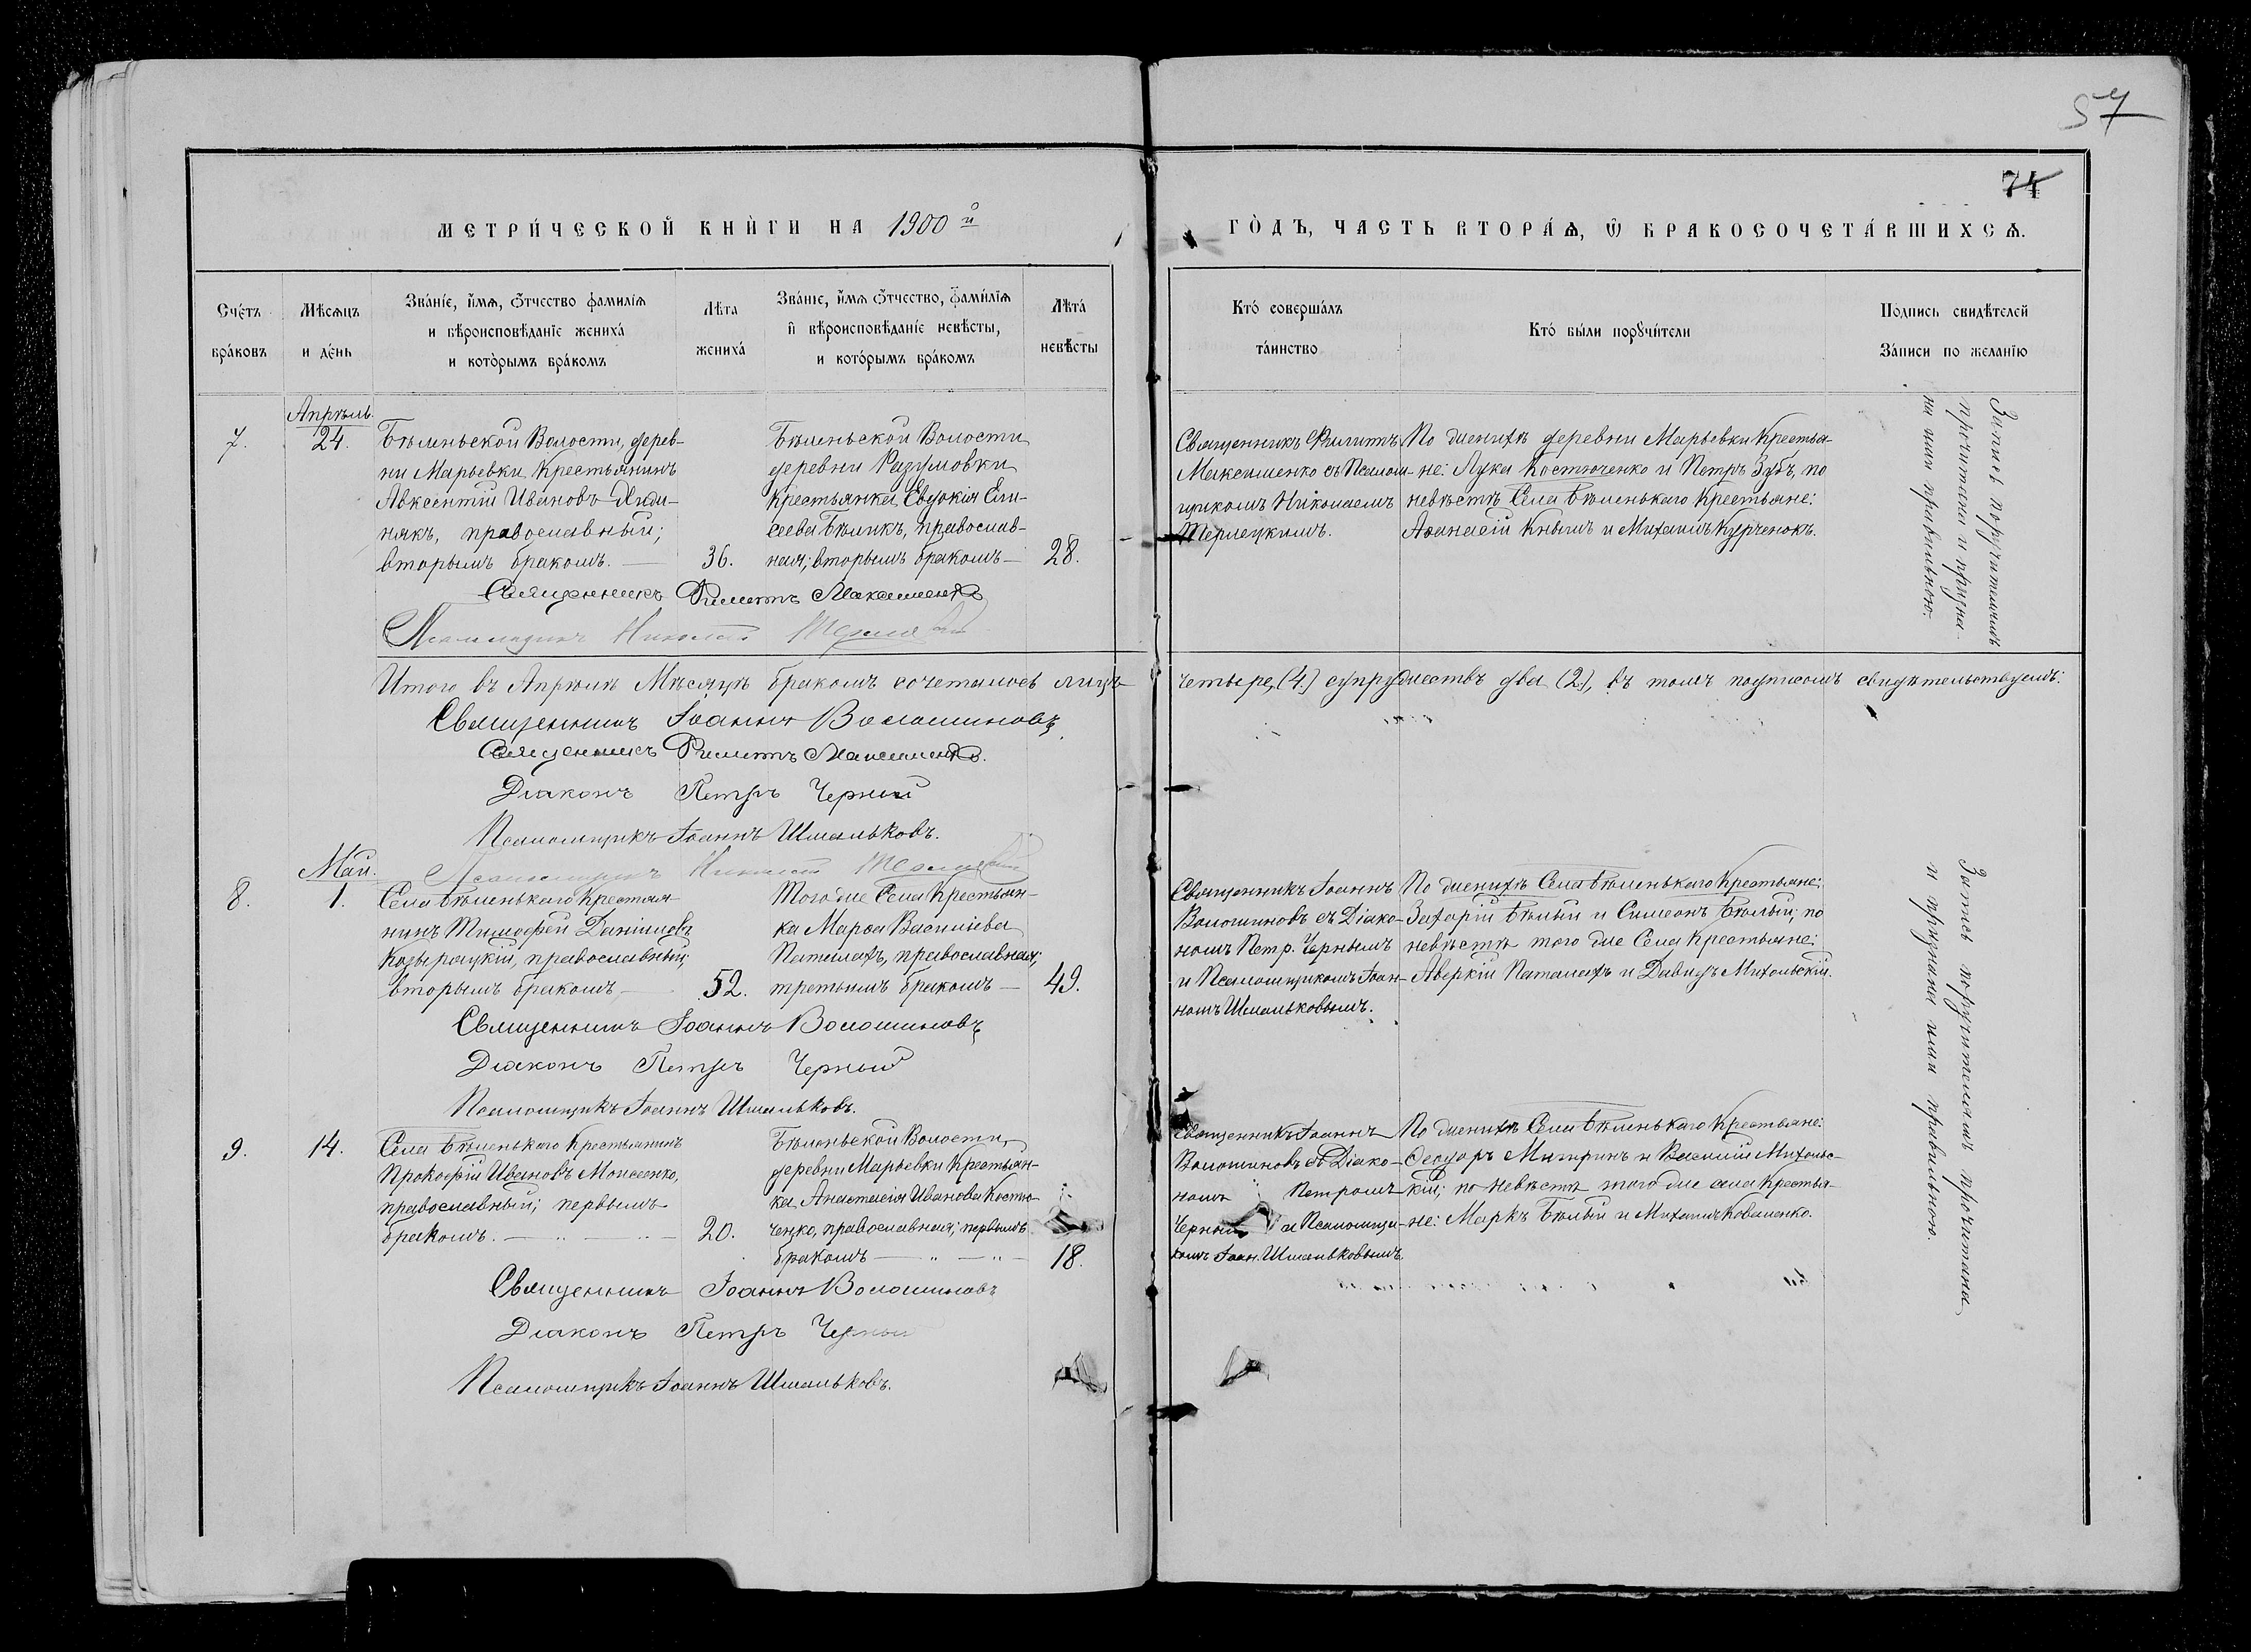 57
74
МЕТРИ́ЧЕСКОЙ КНИ́ГИ НА 1900й
ГО́ДЪ, ЧАСТЬ ВТОРА́Ѧ, Ѡ҆ БРАКОСОЧЕТА́ВШИХСѦ.
Сче́тъ бра́ковъ
Мѣ́сѧцъ и де́нь
Зва́нїе, и҆́мѧ, ѻ҆́тчество фами́лїѧ и вѣроисповѣ́данїе жениха́ и кото́рымъ бра́комъ
Лѣ́та жениха́
Зва́нїе, и҆́мѧ ѻ҆́тчество, фами́лїѧ и҆ вѣроисповѣ́данїе невѣ́сты, и кото́рымъ бра́комъ
Лѣта́ невѣ́сты
Кто́ соверша́лъ та́инство
Кто́ бы́ли порꙋчи́тели
По́дпись свидѣ́телей За́писи по жела́нїю
Апрѣль.
7.
24.
Бѣленьской Волости, дерев-
ни Марьевки Крестьянинъ
Авксентій Ивановъ
някъ, православный;
вторымъ бракомъ.
36.
Бѣленьской Волости
деревни Разумовки
крестьянка Евдокія Ели-
сеева Бѣликъ, православ-
ная; вторымъ бракомъ
28.
Священникъ Филиппъ
Максименко съ Псалом-
щикомъ Николаемъ
Терлецкимъ.
По женихѣ деревни Марьевки крестья-
не: Лука Костюченко и Петръ Зубъ, по
невѣстѣ Села Бѣленькаго крестьяне:
Аѳанасій Книшъ и Михаилъ Курченокъ.
Запись поручителямъ
прочитана и призна-
на ими правильною.
Священникъ Филиппъ Максименко
Псаломщикъ Николай Терлецкій
Итого въ Апрѣлѣ Мѣсяцѣ бракомъ сочеталось лицъ четыре, (4) супружествъ два (2), въ томъ подписомъ свидѣтельствуемъ:
Священникъ Іоаннъ Волошиновъ
Священникъ Филиппъ Максименко.
Діаконъ Петръ Черный
Псаломщикъ Іоаннъ Шмальковъ.
Псаломщикъ Николай Терлецкій
Май.
8.
1.
Села Бѣленькаго Крестья-
нинъ Тимофей Даніиловъ
Козырацкій, православный;
вторымъ бракомъ
52.
Того же Села крестьян-
ка Марѳа Васильева
Паталахъ, православная;
третьимъ бракомъ
49.
Священникъ Іоаннъ
Волошиновъ съ Діако-
номъ Петр. Чернымъ
и Псаломщикомъ Іоан-
номъ Шмальковымъ.
По женихѣ Села Бѣленькаго Крестьяне:
Захарій Бѣлый и Симеонъ Бѣлый; по
невѣстѣ того же Села крестьяне:
Аверкій Паталахъ и Давидъ Михольскій.
Запись поручителямъ прочитана
и признана ими правильною.
Священникъ Іоаннъ Волошиновъ
Діаконъ Петръ Черный
Псаломщикъ Іоаннъ Шмальковъ.
9.
14.
Села Бѣленькаго Крестьянинъ
Прокофій Ивановъ Моисеенко,
православный; первымъ
бракомъ.
20.
Бѣленьской Волости,
деревни Марьевки крестьян-
ка Анастасія Иванова Костю-
ченко, православная; первымъ
бракомъ
18.
Священникъ Іоаннъ
Волошиновъ съ Діако-
номъ Петромъ
Черным и Псаломщи-
комъ Іоан. Шмальковымъ
По женихѣ Села Бѣленькаго Крестьяне:
Ѳеодоръ и Василій Михольс-
кій; по невѣстѣ того же села крестья-
не: Маркъ Бѣлый и Михаилъ Коваленко.
Священникъ Іоаннъ Волошиновъ
Діаконъ Петръ Черный
Псаломщикъ Іоаннъ Шмальковъ.